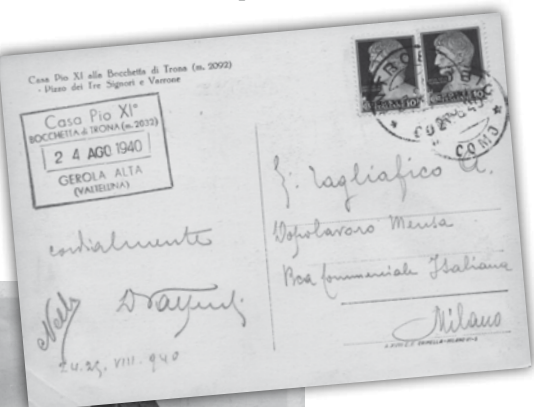 Casa Pio XI alla Bocchetta di Trona (m. 2092)
- Pizzo dei Tre Signori e Varrone
Casa Pio XI°
BOCCHETTA di TRONA (m. 2032)
24 AGO 1940
GEROLA ALTA
(VALTELLINA)
cordialmente
Nello
24.25. VIII. 940
COMO
Tagliafico A.
Dopolavoro Mensa
Bca Commerciale Italiana
Milano